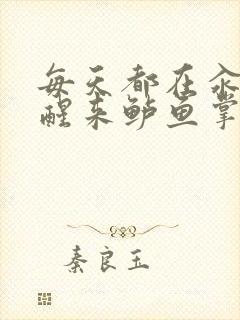 每天都在汆
醒来鲈鱼掌
秦良玉